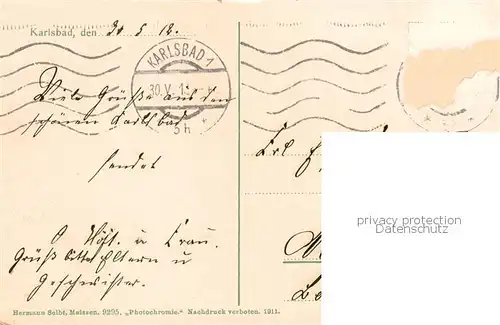 Karlsbad, den 30 5 12.
KARLSBAD 1
30.V.1
5h
Viele Grüße aus dem
schönen Karlsbad
sendet
Frl
O. Vogt. u Frau.
Grüß bitte Eltern u
Geschwister.
privacy protection
memory
Hermann Seibt, Meissen. 9295. „Photochromie.“ Nachdruck verboten. 1911.